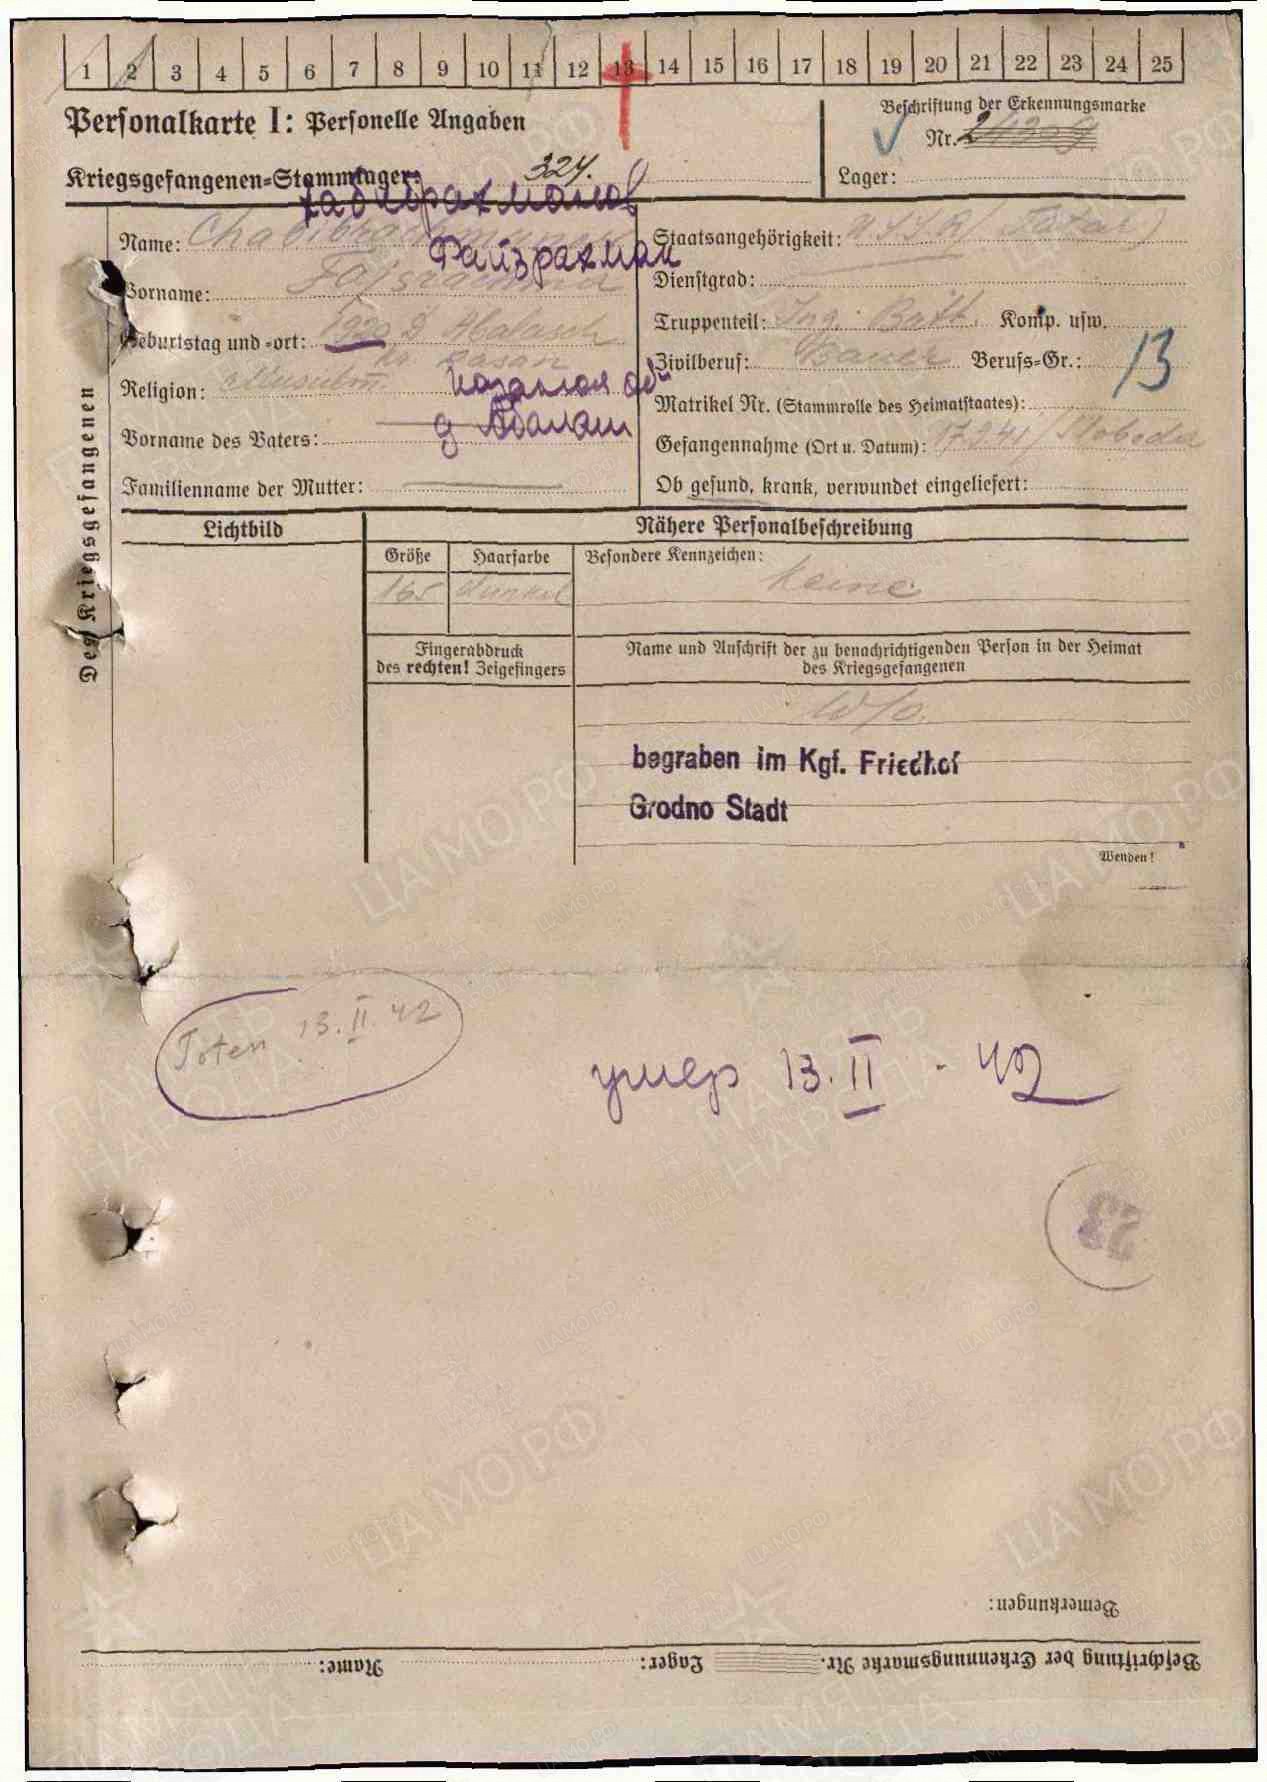 1 2 3 4 5 6 7 8 9 10 11 12 13 14 15 16 17 18 19 20 21 22 23 24 25
Personalkarte I: Personelle Angaben
Beschriftung der Erkennungsmarke
Nr.
Kriegsgefangenen-Stammlager: 324.
Lager:
Хабибрахманов
Des Kriegsgefangenen
Name:
Файзрахман
Vorname: Fajsrachman
Geburtstag und -ort: 1920 D. Abalasch
Kr. Kasan
Religion: Muselm
Казанская об
Vorname des Vaters:
д Абалаш
Familienname der Mutter:
Staatsangehörigkeit: U.S.S.R. (Tatar)
Dienstgrad:
Truppenteil: Ing. Batt. Komp. usw.
Zivilberuf: Bauer Berufs-Gr.: 13
Matrikel Nr. (Stammrolle des Heimatstaates):
Gefangennahme (Ort u. Datum): 17.9.41, Sloboda
Ob gesund, krank, verwundet eingeliefert:
Lichtbild
Nähere Personalbeschreibung
Größe
Haarfarbe
Besondere Kennzeichen:
165
dunkel
keine
Fingerabdruck
des rechten! Zeigefingers
Name und Anschrift der zu benachrichtigenden Person in der Heimat
des Kriegsgefangenen
W/o.
begraben im Kgf. Friedhof
Grodno Stadt
Wenden!
Toten 13.II.42
умер 13.II - 42
Bemerkungen:
Beschriftung der Erkennungsmarke Nr. Lager: Name:
ЦАМО РФ
ПАМЯТЬ НАРОДА